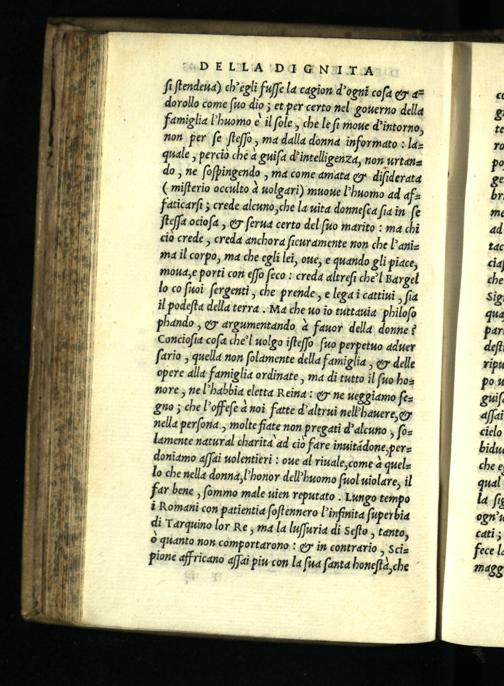 DELLA DIGNITA
si stendeua) ch'egli fusse la cagion d'ogni cosa & a=
dorollo come suo dio; et per certo nel gouerno della
famiglia l'huomo è il sole, che le si moue d'intorno,
non per se stesso, ma dalla donna informato: la=
quale, perciò che à guisa d'intelligenza, non urtan=
do, ne sospingendo, ma come amata & disiderata
(misterio occulto à uolgari) muoue l'huomo ad af=
faticarsi; crede alcuno, che la uita donnesca sia in se
stessa ociosa, & serua certo del suo marito: ma chi
ciò crede, creda anchora sicuramente non che l'ani=
ma il corpo, ma che egli lei, oue, e quando gli piace,
moua, e porti con esso seco: creda altresi che'l Bargel
lo co suoi sergenti, che prende, e lega i cattiui, sia
il podesta della terra. Ma che uo io tuttauia philoso
phando, & argumentando à fauor della donne?
Conciosia cosa che'l uolgo istesso suo perpetuo aduer
sario, quella non solamente della famiglia, & delle
opere alla famiglia ordinate, ma di tutto il suo ho=
nore, ne l'habbia eletta Reina: & ne ueggiamo se=
gno; che l'offese à noi fatte d'altrui nell'hauere, &
nella persona, molte fiate non pregati d'alcuno, so=
lamente natural charità ad ciò fare inuitandone, per=
doniamo assai uolentieri: oue al riuale, come à quel=
lo che nella donna, l'honor dell'huomo suol uiolare, il
far bene, sommo male uien reputato. Lungo tempo
i Romani con patientia sostennero l'infinita superbia
di Tarquino lor Re, ma la lussuria di Sesto, tanto,
ò quanto non comportarono: & in contrario, Sci=
pione affricano assai piu con la sua santa honestà, che